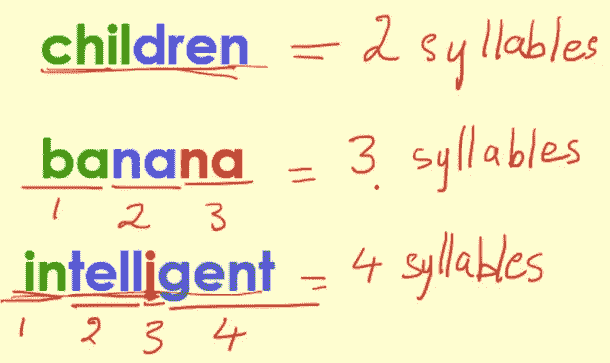 children = 2 syllables
banana = 3. syllables
1 2 3
intelligent = 4 syllables
1 2 3 4